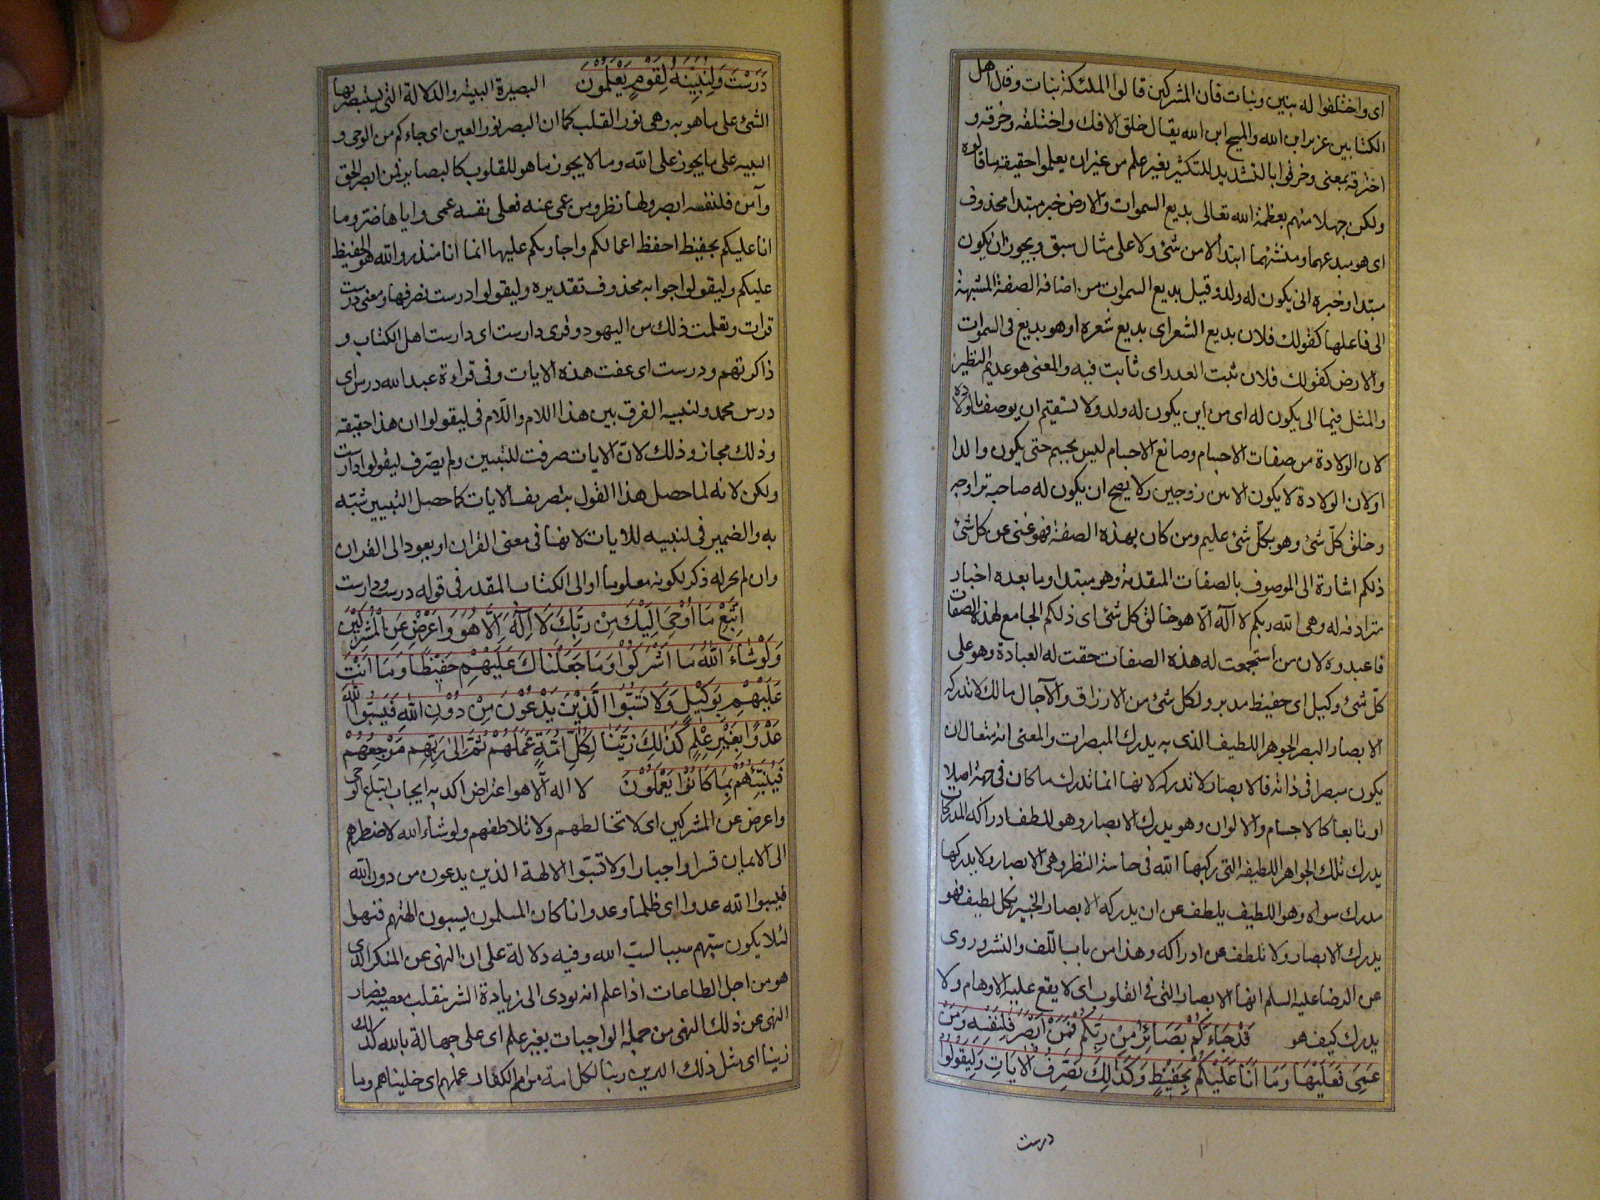 اى واختلفوا له بنين وبنات فان المشركين قالوا الملئكة بنات وقال اهل
الكتابين عزير ابن الله والمسيح ابن الله يقال خلق الافك واختلفه وخرقه و
اخترقه بمعنى وخرقوا بالتشديد للتكثير بغير علم من غير ان يعلموا حقيقة ما قالوه
ولكن جهلا منهم بعظمة الله تعالى بديع السموات والارض خبر مبتدا محذوف
اى هو مبدعهما ومنشئهما ابتدأ لا من شئ ولا على مثال سبق ويجوز ان يكون
مبتدا وخبره انى يكون له ولد وقيل بديع السموات من اضافة الصفة المشبهة
الى فاعلها كقولك فلان بديع الشعر اى بديع شعره او هو بديع فى السموات
والارض كقولك فلان ثبت الغدر اى ثابت فيه والمعنى هو عديم النظير
والمثل فيها انى يكون له اى من اين يكون له ولد ولا يستقيم ان يوصف بالولادة
لان الولادة من صفات الاجسام وصانع الاجسام ليس بجسم حتى يكون والدا
او لان الولادة لا يكون الا بين زوجين ولا يصح ان يكون له صاحبة تزاوجه
وخلق كلّ شئ وهو بكلّ شئ عليم ومن كان بهذه الصفة فهو غنى عن كل شئ
ذلكم اشارة الى الموصوف بالصفات المتقدمة وهو مبتدا وما بعده اخبار
مترادفة له وهى الله ربكم لا اله الّا هو خالق كل شئ اى ذلكم الجامع لهذه الصفات
فاعبدوه لان من استجمعت له هذه الصفات حقت له العبادة وهو على
كلّ شئ وكيل اى حفيظ مدبر ولكل شئ من الارزاق والآجال مالك لا تدركه
الابصار البصر الجوهر اللطيف الذى به يدرك المبصرات والمعنى انه متعال ان
يكون مبصرا فى ذاته فالابصار لا تدركه لانها انما تدرك ما كان فى جهة اصلا
او تابعا كالاجسام والالوان وهو يدرك الابصار وهو للطف ادراكه المدركات
يدرك تلك الجواهر اللطيفة التى ركبها الله فى حاسة النظر وهى الابصار ولا يدركها
مدرك سواه وهو اللطيف يلطف عن ان يدركه الابصار الخبير بكل لطيف فهو
يدرك الابصار ولا تلطف عن ادراكه وهذا من باب اللّف والنشر وروى
عن الرضا عليه السلم انها الابصار التى فى القلوب اى لا يقع عليه الاوهام ولا
يدرك كيف هو قَدْ جَاءَكُمْ بَصَائِرُ مِنْ رَبِّكُمْ فَمَنْ اَبْصَرَ فَلِنَفْسِهِ وَمَنْ
عَمِىَ فَعَلَيْهَا وَمَا اَنَا عَلَيْكُمْ بِحَفِيْظٍ وَكَذَلِكَ نُصَرِّفُ الْاٰيَاتِ وَلِيَقُولُوْا
درست
دَرَسْتَ وَلِنُبَيِّنَهُ لِقَوْمٍ يَعْلَمُونَ البصيرة البينة والدلالة التى يستبصر بها
الشئ على ما هو به وهى نور القلب كما ان البصر نور العين اى جاءكم من الوحى و
التنبيه على ما يجوز على الله وما لا يجوز ما هو للقلوب كالبصاير فمن ابصر الحق
وآمن فلنفسه ابصر ولها نظر ومن عمى عنه فعلى نفسه عمى واياها ضر وما
انا عليكم بحفيظ احفظ اعمالكم واجازيكم عليها انما انا منذر والله هو الحفيظ
عليكم وليقولوا جوابه محذوف تقديره وليقولوا درست نصرفها ومعنى درست
قرات وتعلمت ذلك من اليهود وقرى دارست اى دارست اهل الكتاب و
ذاكرتهم ودرست اى عفت هذه الايات وفى قراءة عبد الله درس اى
درس محمد ولنبينه الفرق بين هذا اللام واللّام فى ليقولوا ان هذا حقيقة
وذلك مجاز وذلك لانّ الايات صرفت للتبيين ولم يصرّف ليقولوا دارست
ولكن لانه لما حصل هذا القول بتصريف الايات كما حصل التبيين شبّه
به والضمير فى لنبينه للايات لانها فى معنى القران او يعود الى القران
وان لم يجر له ذكر لكونه معلوما او الى الكتاب المقدر فى قوله درست ودارست
اِتَّبِعْ مَا اُوْحِىَ اِلَيْكَ مِنْ رَبِّكَ لَا اِلَهَ اِلَّا هُوَ وَاَعْرِضْ عَنِ الْمُشْرِكِيْنَ
وَلَوْ شَاءَ اللهُ مَا اَشْرَكُوْا وَمَا جَعَلْنَاكَ عَلَيْهِمْ حَفِيْظًا وَمَا اَنْتَ
عَلَيْهِمْ بِوَكِيْلٍ وَلَا تَسُبُّوا الَّذِيْنَ يَدْعُوْنَ مِنْ دُوْنِ اللهِ فَيَسُبُّوا اللهَ
عَدْوًا بِغَيْرِ عِلْمٍ كَذَلِكَ زَيَّنَّا لِكُلِّ اُمَّةٍ عَمَلَهُمْ ثُمَّ اِلٰى رَبِّهِمْ مَرْجِعُهُمْ
فَيُنَبِّئُهُمْ بِمَا كَانُوْا يَعْمَلُوْنَ لا اله الّا هو اعتراض اكد به ايجاب اتباع الوحى
واعرض عن المشركين اى لا تخالطهم ولا تلاطفهم ولو شاء الله لاضطرهم
الى الايمان قسرا واجبارا ولا تسبّوا الالهة الذين يدعون من دون الله
فيسبوا الله عدوا اى ظلما وعدوانا كان المسلمون يسبون الهتهم فنهوا
لئلا يكون سبهم سببا لسب الله وفيه دلالة على ان النهى عن المنكر الذى
هو من اجل الطاعات اذا علم انه يودى الى زيادة الشر ينقلب معصية فصار
النهى عن ذلك النهى من جملة الواجبات بغير علم اى على جهالة بالله كذلك
زينا اى مثل ذلك التزيين زينا لكل امة من امم الكفار عملهم اى خليناهم وما